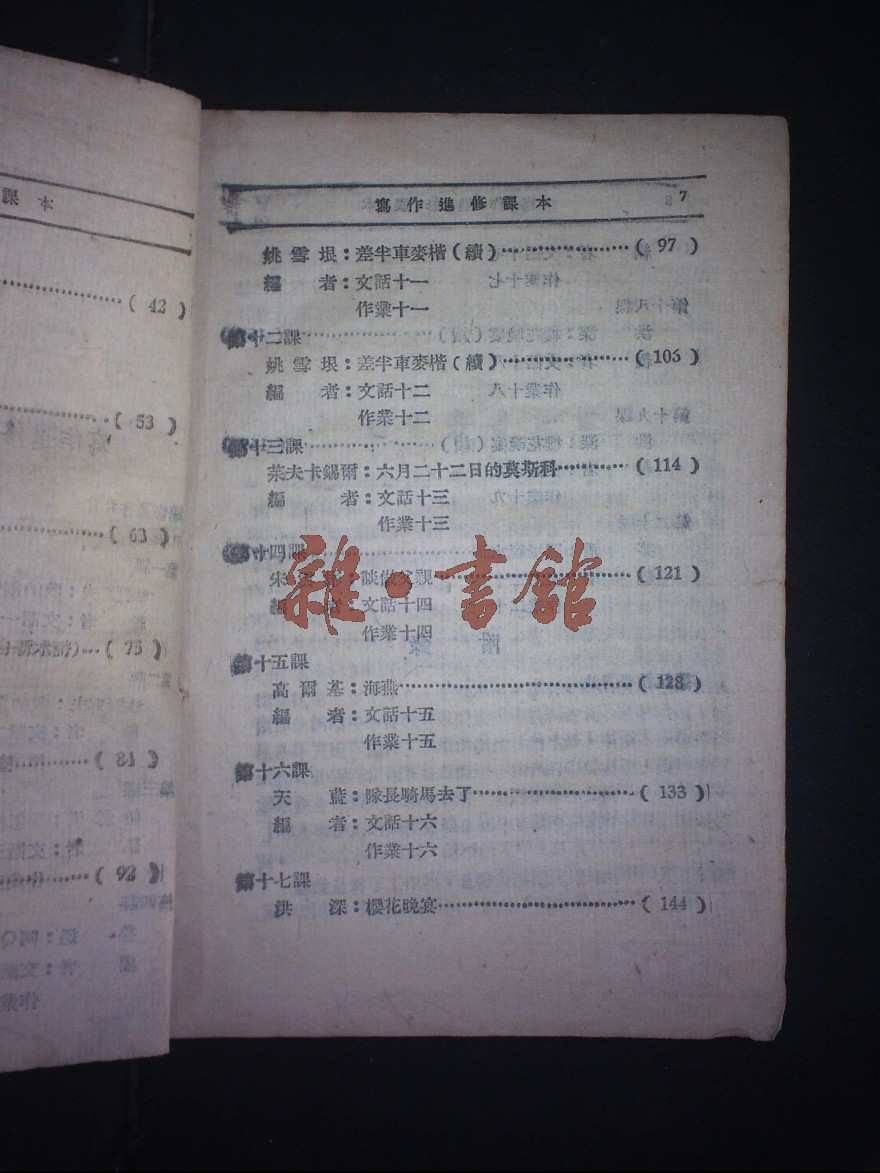 課本
( 42 )
( 53 )
( 63 )
( 75 )
( 84 )
( 92 )
寫作進修課本 7
姚雪垠:差半車麥楷(續)……………( 97 )
編者:文話十一
作業十一
第十二課
姚雪垠:差半車麥楷(續)……………( 105 )
編者:文話十二
作業十二
第十三課
萊夫卡錫爾:六月二十二日的莫斯科………( 114 )
編者:文話十三
作業十三
第十四課
宋:談做父親……………………( 121 )
編者:文話十四
作業十四
第十五課
高爾基:海燕……………………( 128 )
編者:文話十五
作業十五
第十六課
天藍:隊長騎馬去了………………( 133 )
編者:文話十六
作業十六
第十七課
洪深:櫻花晚宴…………………( 144 )
雜·書館